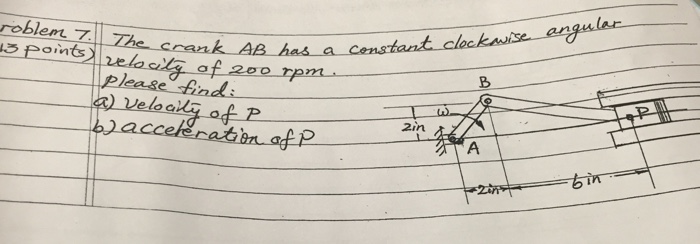 roblem 7. The crank AB has a constant clockwise angular
13 points) velocity of 200 rpm.
please find:
a) velocity of P
b) acceleration of P
B
ω
P
2in
A
2in
6in